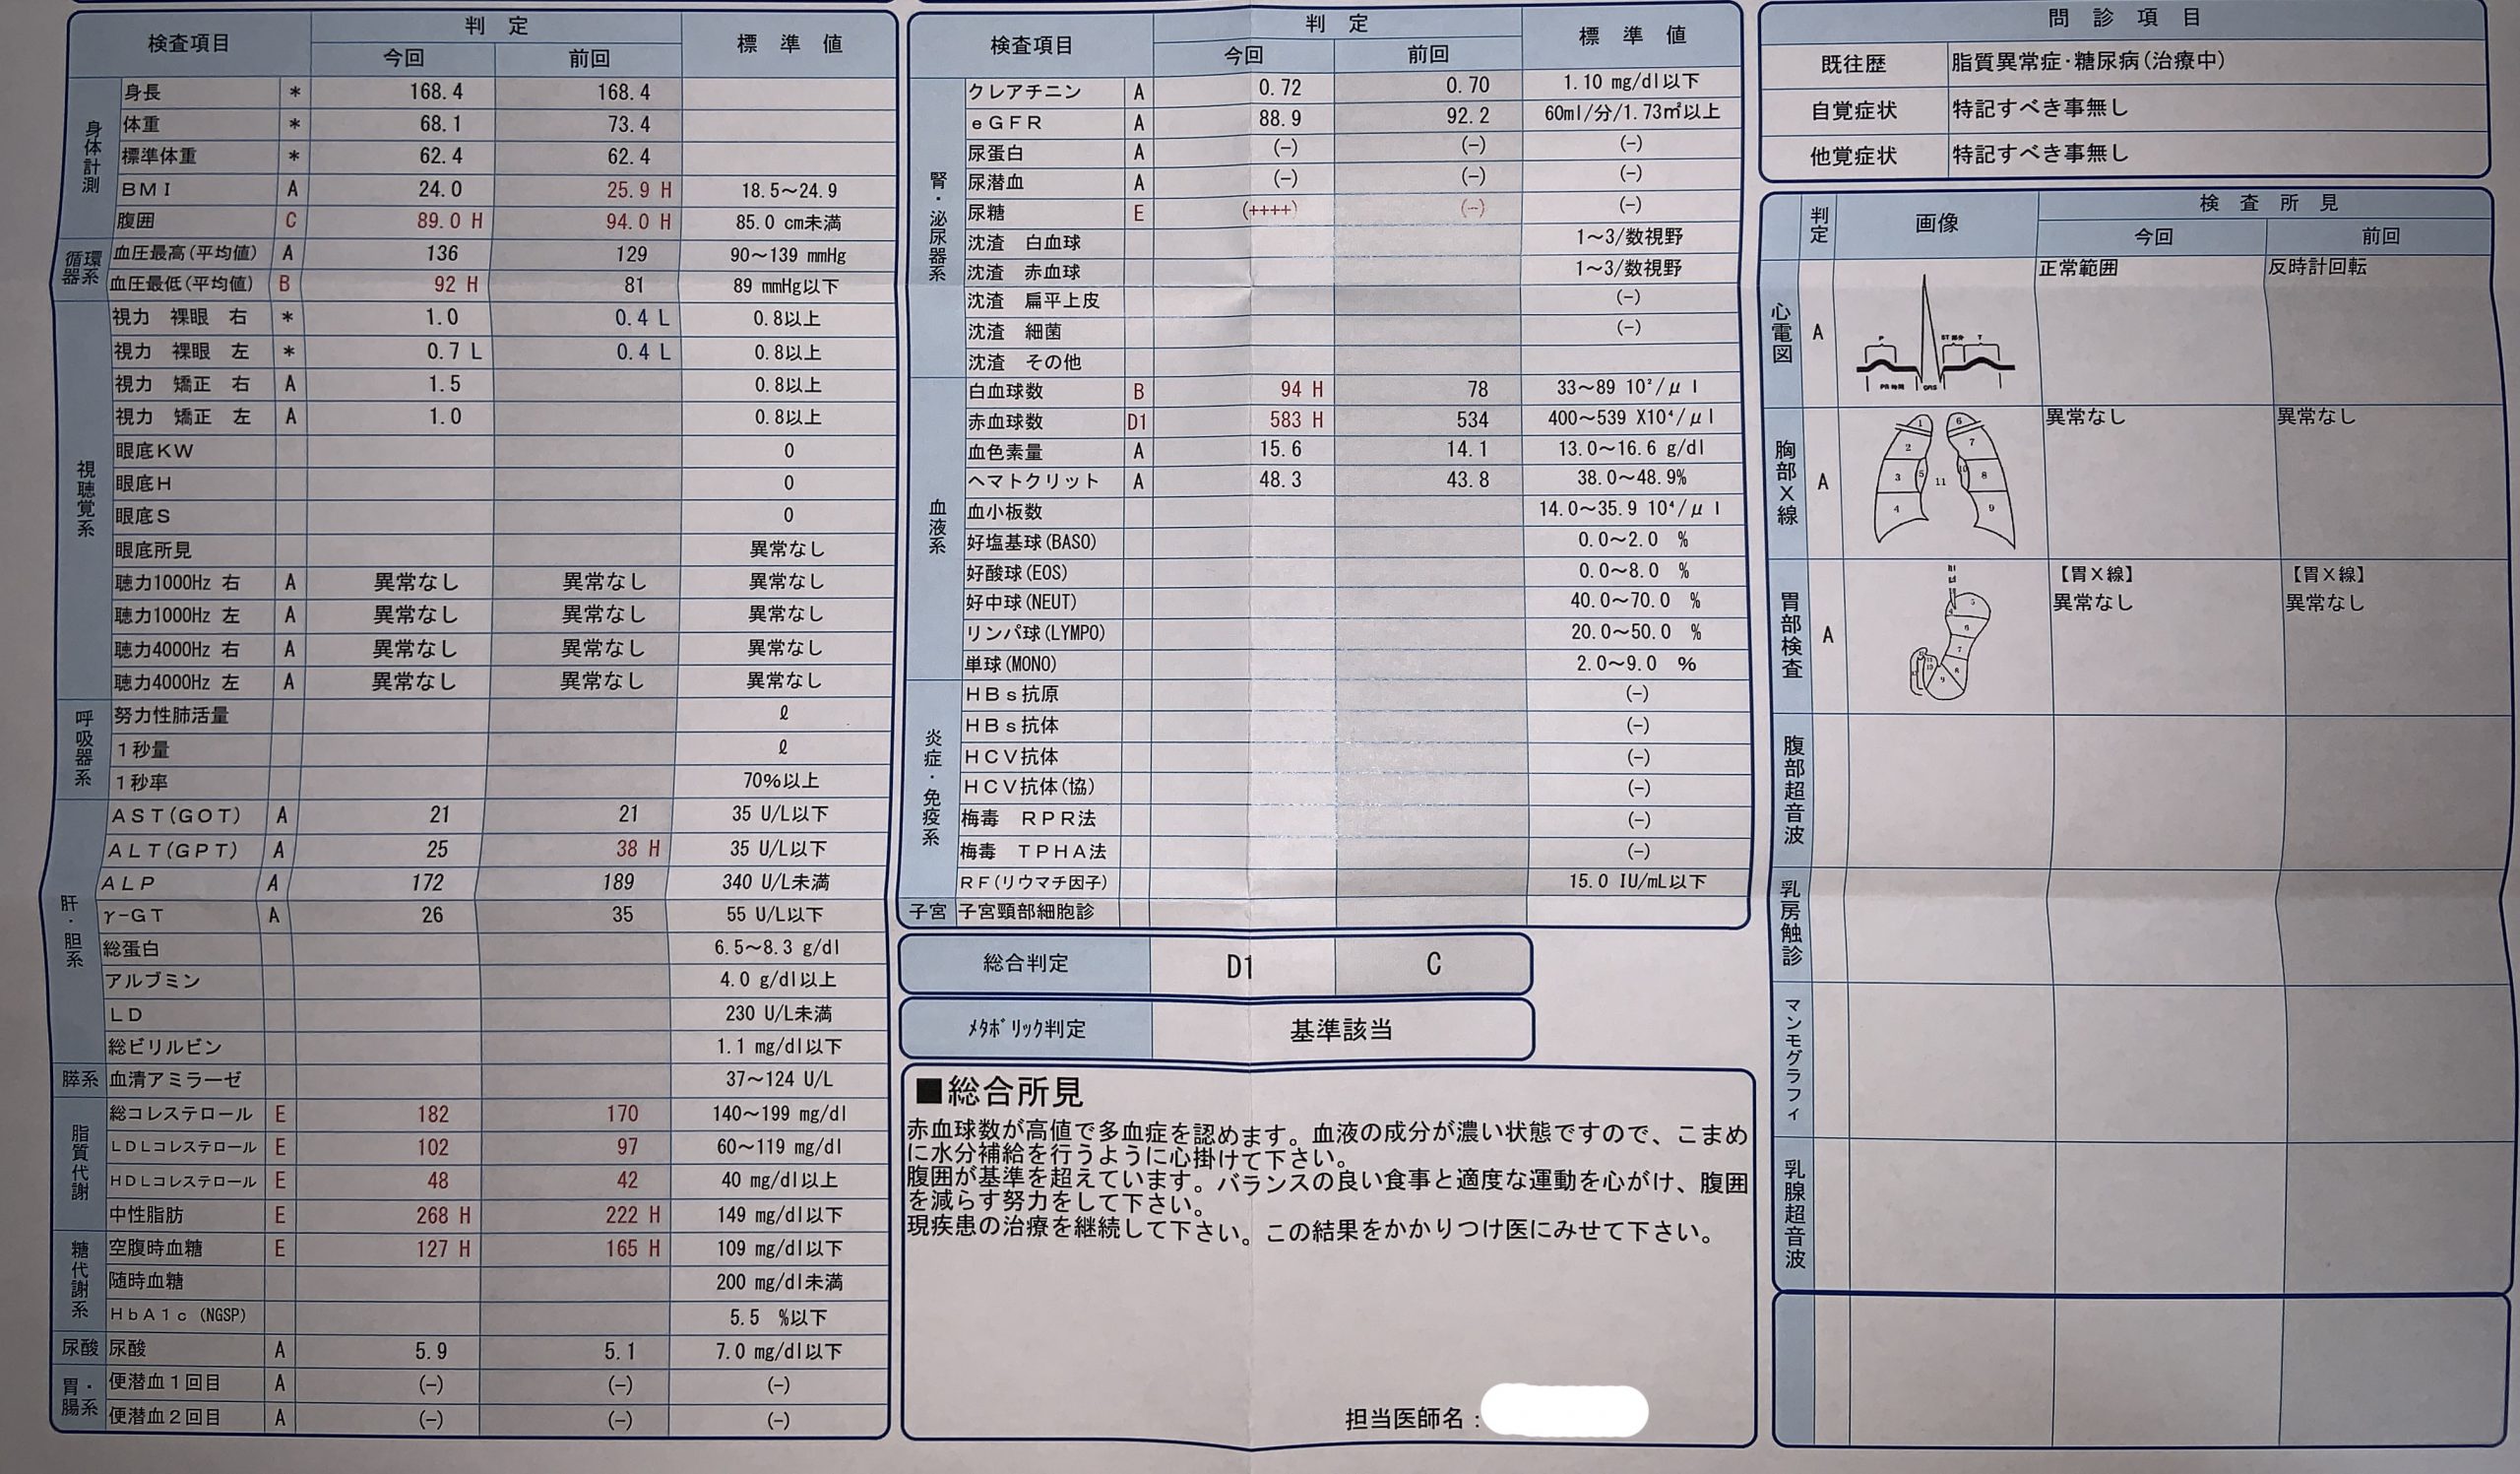 検査項目 判定 標準値
今回 前回
身体計測
身長 * 168.4 168.4
体重 * 68.1 73.4
標準体重 * 62.4 62.4
ＢＭＩ A 24.0 25.9 H 18.5～24.9
腹囲 C 89.0 H 94.0 H 85.0 cm未満
循環器系
血圧最高(平均値) A 136 129 90～139 mmHg
血圧最低(平均値) B 92 H 81 89 mmHg以下
視聴覚系
視力 裸眼 右 * 1.0 0.4 L 0.8以上
視力 裸眼 左 * 0.7 L 0.4 L 0.8以上
視力 矯正 右 A 1.5 0.8以上
視力 矯正 左 A 1.0 0.8以上
眼底ＫＷ 0
眼底Ｈ 0
眼底Ｓ 0
眼底所見 異常なし
聴力1000Hz 右 A 異常なし 異常なし 異常なし
聴力1000Hz 左 A 異常なし 異常なし 異常なし
聴力4000Hz 右 A 異常なし 異常なし 異常なし
聴力4000Hz 左 A 異常なし 異常なし 異常なし
呼吸器系
努力性肺活量 ℓ
１秒量 ℓ
１秒率 70%以上
肝・胆系
ＡＳＴ(ＧＯＴ) A 21 21 35 U/L以下
ＡＬＴ(ＧＰＴ) A 25 38 H 35 U/L以下
ＡＬＰ A 172 189 340 U/L未満
γ-ＧＴ A 26 35 55 U/L以下
総蛋白 6.5～8.3 g/dl
アルブミン 4.0 g/dl以上
ＬＤ 230 U/L未満
総ビリルビン 1.1 mg/dl以下
膵系 血清アミラーゼ 37～124 U/L
脂質代謝
総コレステロール E 182 170 140～199 mg/dl
ＬＤＬコレステロール E 102 97 60～119 mg/dl
ＨＤＬコレステロール E 48 42 40 mg/dl以上
中性脂肪 E 268 H 222 H 149 mg/dl以下
糖代謝系
空腹時血糖 E 127 H 165 H 109 mg/dl以下
随時血糖 200 mg/dl未満
ＨｂＡ１ｃ (NGSP) 5.5 %以下
尿酸 尿酸 A 5.9 5.1 7.0 mg/dl以下
胃・腸系
便潜血１回目 A (-) (-) (-)
便潜血２回目 A (-) (-) (-)
検査項目 判定 標準値
今回 前回
腎・泌尿器系
クレアチニン A 0.72 0.70 1.10 mg/dl以下
ｅＧＦＲ A 88.9 92.2 60ml/分/1.73㎡以上
尿蛋白 A (-) (-) (-)
尿潜血 A (-) (-) (-)
尿糖 E (++++) (-) (-)
沈渣 白血球 1～3/数視野
沈渣 赤血球 1～3/数視野
沈渣 扁平上皮 (-)
沈渣 細菌 (-)
沈渣 その他
血液系
白血球数 B 94 H 78 33～89 10²/μl
赤血球数 D1 583 H 534 400～539 X10⁴/μl
血色素量 A 15.6 14.1 13.0～16.6 g/dl
ヘマトクリット A 48.3 43.8 38.0～48.9%
血小板数 14.0～35.9 10⁴/μl
好塩基球(BASO) 0.0～2.0 %
好酸球(EOS) 0.0～8.0 %
好中球(NEUT) 40.0～70.0 %
リンパ球(LYMPO) 20.0～50.0 %
単球(MONO) 2.0～9.0 %
炎症・免疫系
ＨＢｓ抗原 (-)
ＨＢｓ抗体 (-)
ＨＣＶ抗体 (-)
ＨＣＶ抗体(協) (-)
梅毒 ＲＰＲ法 (-)
梅毒 ＴＰＨＡ法 (-)
ＲＦ(リウマチ因子) 15.0 IU/mL以下
子宮 子宮頸部細胞診
総合判定 D1 C
ﾒﾀﾎﾞﾘｯｸ判定 基準該当
■総合所見
赤血球数が高値で多血症を認めます。血液の成分が濃い状態ですので、こまめ
に水分補給を行うように心掛けて下さい。
腹囲が基準を超えています。バランスの良い食事と適度な運動を心がけ、腹囲
を減らす努力をして下さい。
現疾患の治療を継続して下さい。この結果をかかりつけ医にみせて下さい。
担当医師名：
問診項目
既往歴 脂質異常症･糖尿病(治療中)
自覚症状 特記すべき事無し
他覚症状 特記すべき事無し
判定 画像 検査所見
今回 前回
心電図 A 正常範囲 反時計回転
P ST部分 T
PR時間 QRS
胸部Ｘ線 A 異常なし 異常なし
1 2 3 4 5 6 7 8 9 10 11
胃部検査 A 【胃Ｘ線】 【胃Ｘ線】
異常なし 異常なし
腹部超音波
乳房触診
マンモグラフィ
乳腺超音波